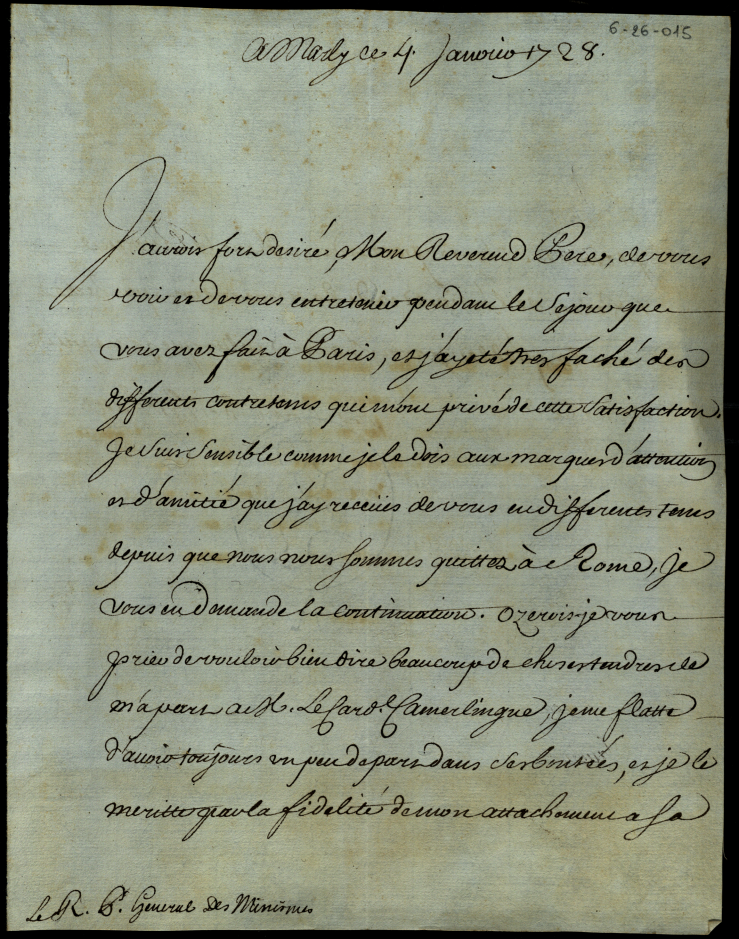 6-26-015
A Marly ce 4. Janvier 1728.
J'aurois fort desiré, Mon Reverend Pere, de vous
voir et de vous entretenir pendant le Sejour que
vous avez fait à Paris, et j'ay eté tres faché des
differents contretems qui m'ont privé de cette Satisfaction.
Je suis Sensible comme je le dois aux marques d'attention
et d'amitié que j'ay receües de vous en differents tems
depuis que nous nous sommes quittez à Rome, je
vous en demande la continuation. Ozerois-je vous
prier de vouloir bien dire beaucoup de choses tendres de
ma part a M. Le Card.l Camerlingue, je me flatte
d'avoir toujours un peu de part dans Ses bontées, et je le
meritte par la fidelité de mon attachement a Sa
Le R. P. General Des Minimes